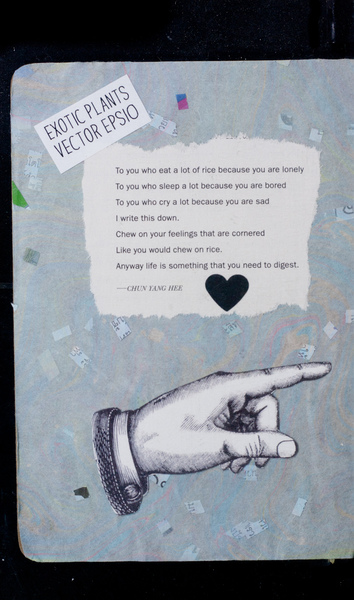 EXOTIC PLANTS
VECTOR EPSIO
To you who eat a lot of rice because you are lonely
To you who sleep a lot because you are bored
To you who cry a lot because you are sad
I write this down.
Chew on your feelings that are cornered
Like you would chew on rice.
Anyway life is something that you need to digest.
—CHUN YANG HEE